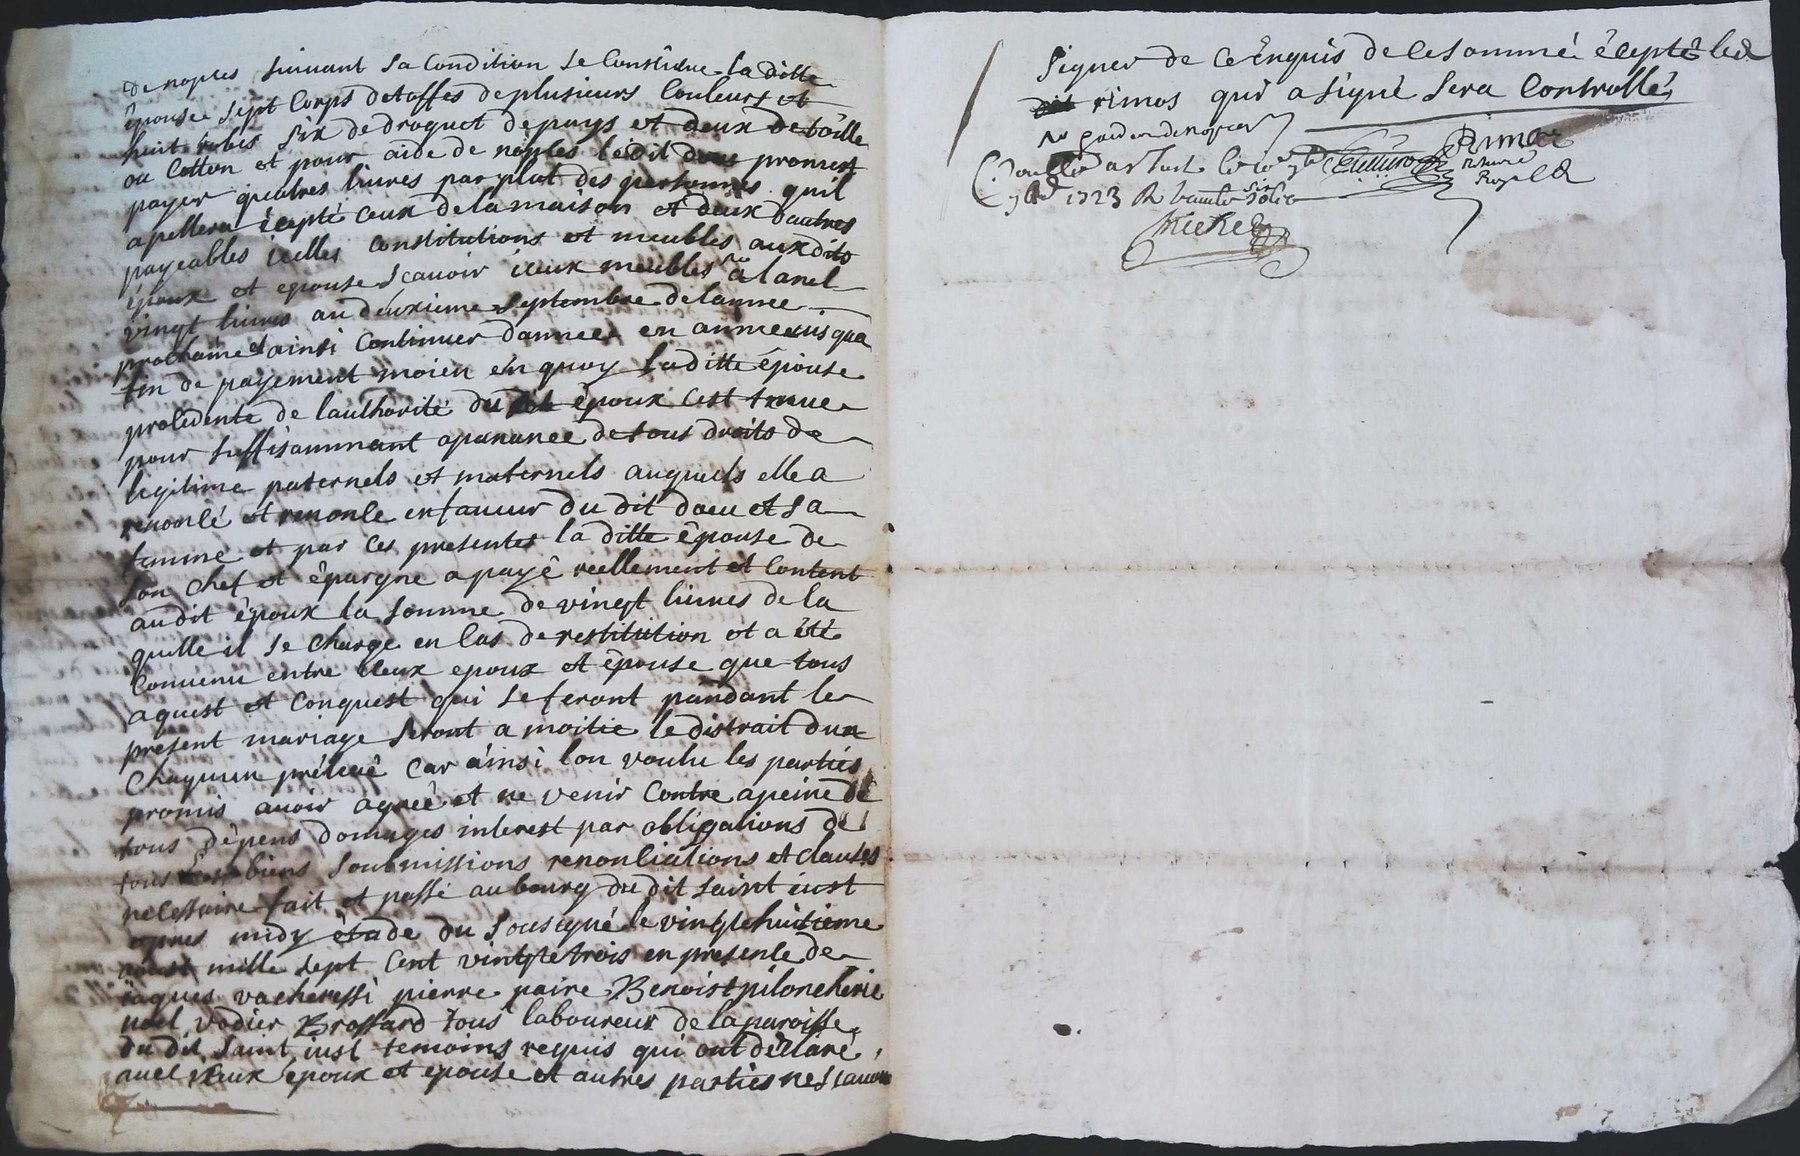 de noples suivant sa condition se constitue la ditte
épousee sept corps detoffes de plusieurs couleurs et
huit robes six de droguet de pays et deux de toille
ou cotton et pour aide de noples ledit doue promest
payer quatres livres par plat des personnes quil
apellera écepté ceux de la maison et deux dautres
payeables icelles constitutions et meubles auxdits
époux et epouse scavoir iceux meubles a lanel
vingt livres au deuxieme septembre de lannee
prochaine et ainsi continuer dannee en annee iusqua
fin de payement moien en quoy laditte épouse
procedente de lauthorité du dit époux cest tenue
pour suffisammant apananee de tous droits de
legitime paternels et maternels auquels elle a
renoncé et renonce enfaueur du dit doeu et sa
famme et par ces presentes la ditte épouse de
son chef et épargne a payé reellement et content
audit époux la somme de vingt livres de la
quelle il se charge en cas de restitution et a été
convenu entre ceux epoux et épouse que tous
aquest et conquest qui se feront pandant le
present mariage seront a moitie le distrait dun
chaqun prélevé car áinsi lon voulu les parties
promis avoir agreé et ne venir contre apeine de
tous dépens domages interest par obligations de
tous biens soubmissions renonciations et clauses
necessaire fait et passé au bourg du dit saint iust
apres midy étude du sousigné le vingtehuitieme
aoust mille sept cent vingtetrois en presence de
iaques vacheressi pierre paire Benoist piloncherie
noel vodier Brossard tous laboureur de la paroisse
du dit saint iust temoins requis qui ont déclaré
avec iceux epoux et epouse et autres parties ne scavoir
signer de ce enquis de ce sommé écepté led
dit rimos qui a signé sera controllé
7bre 1723 R